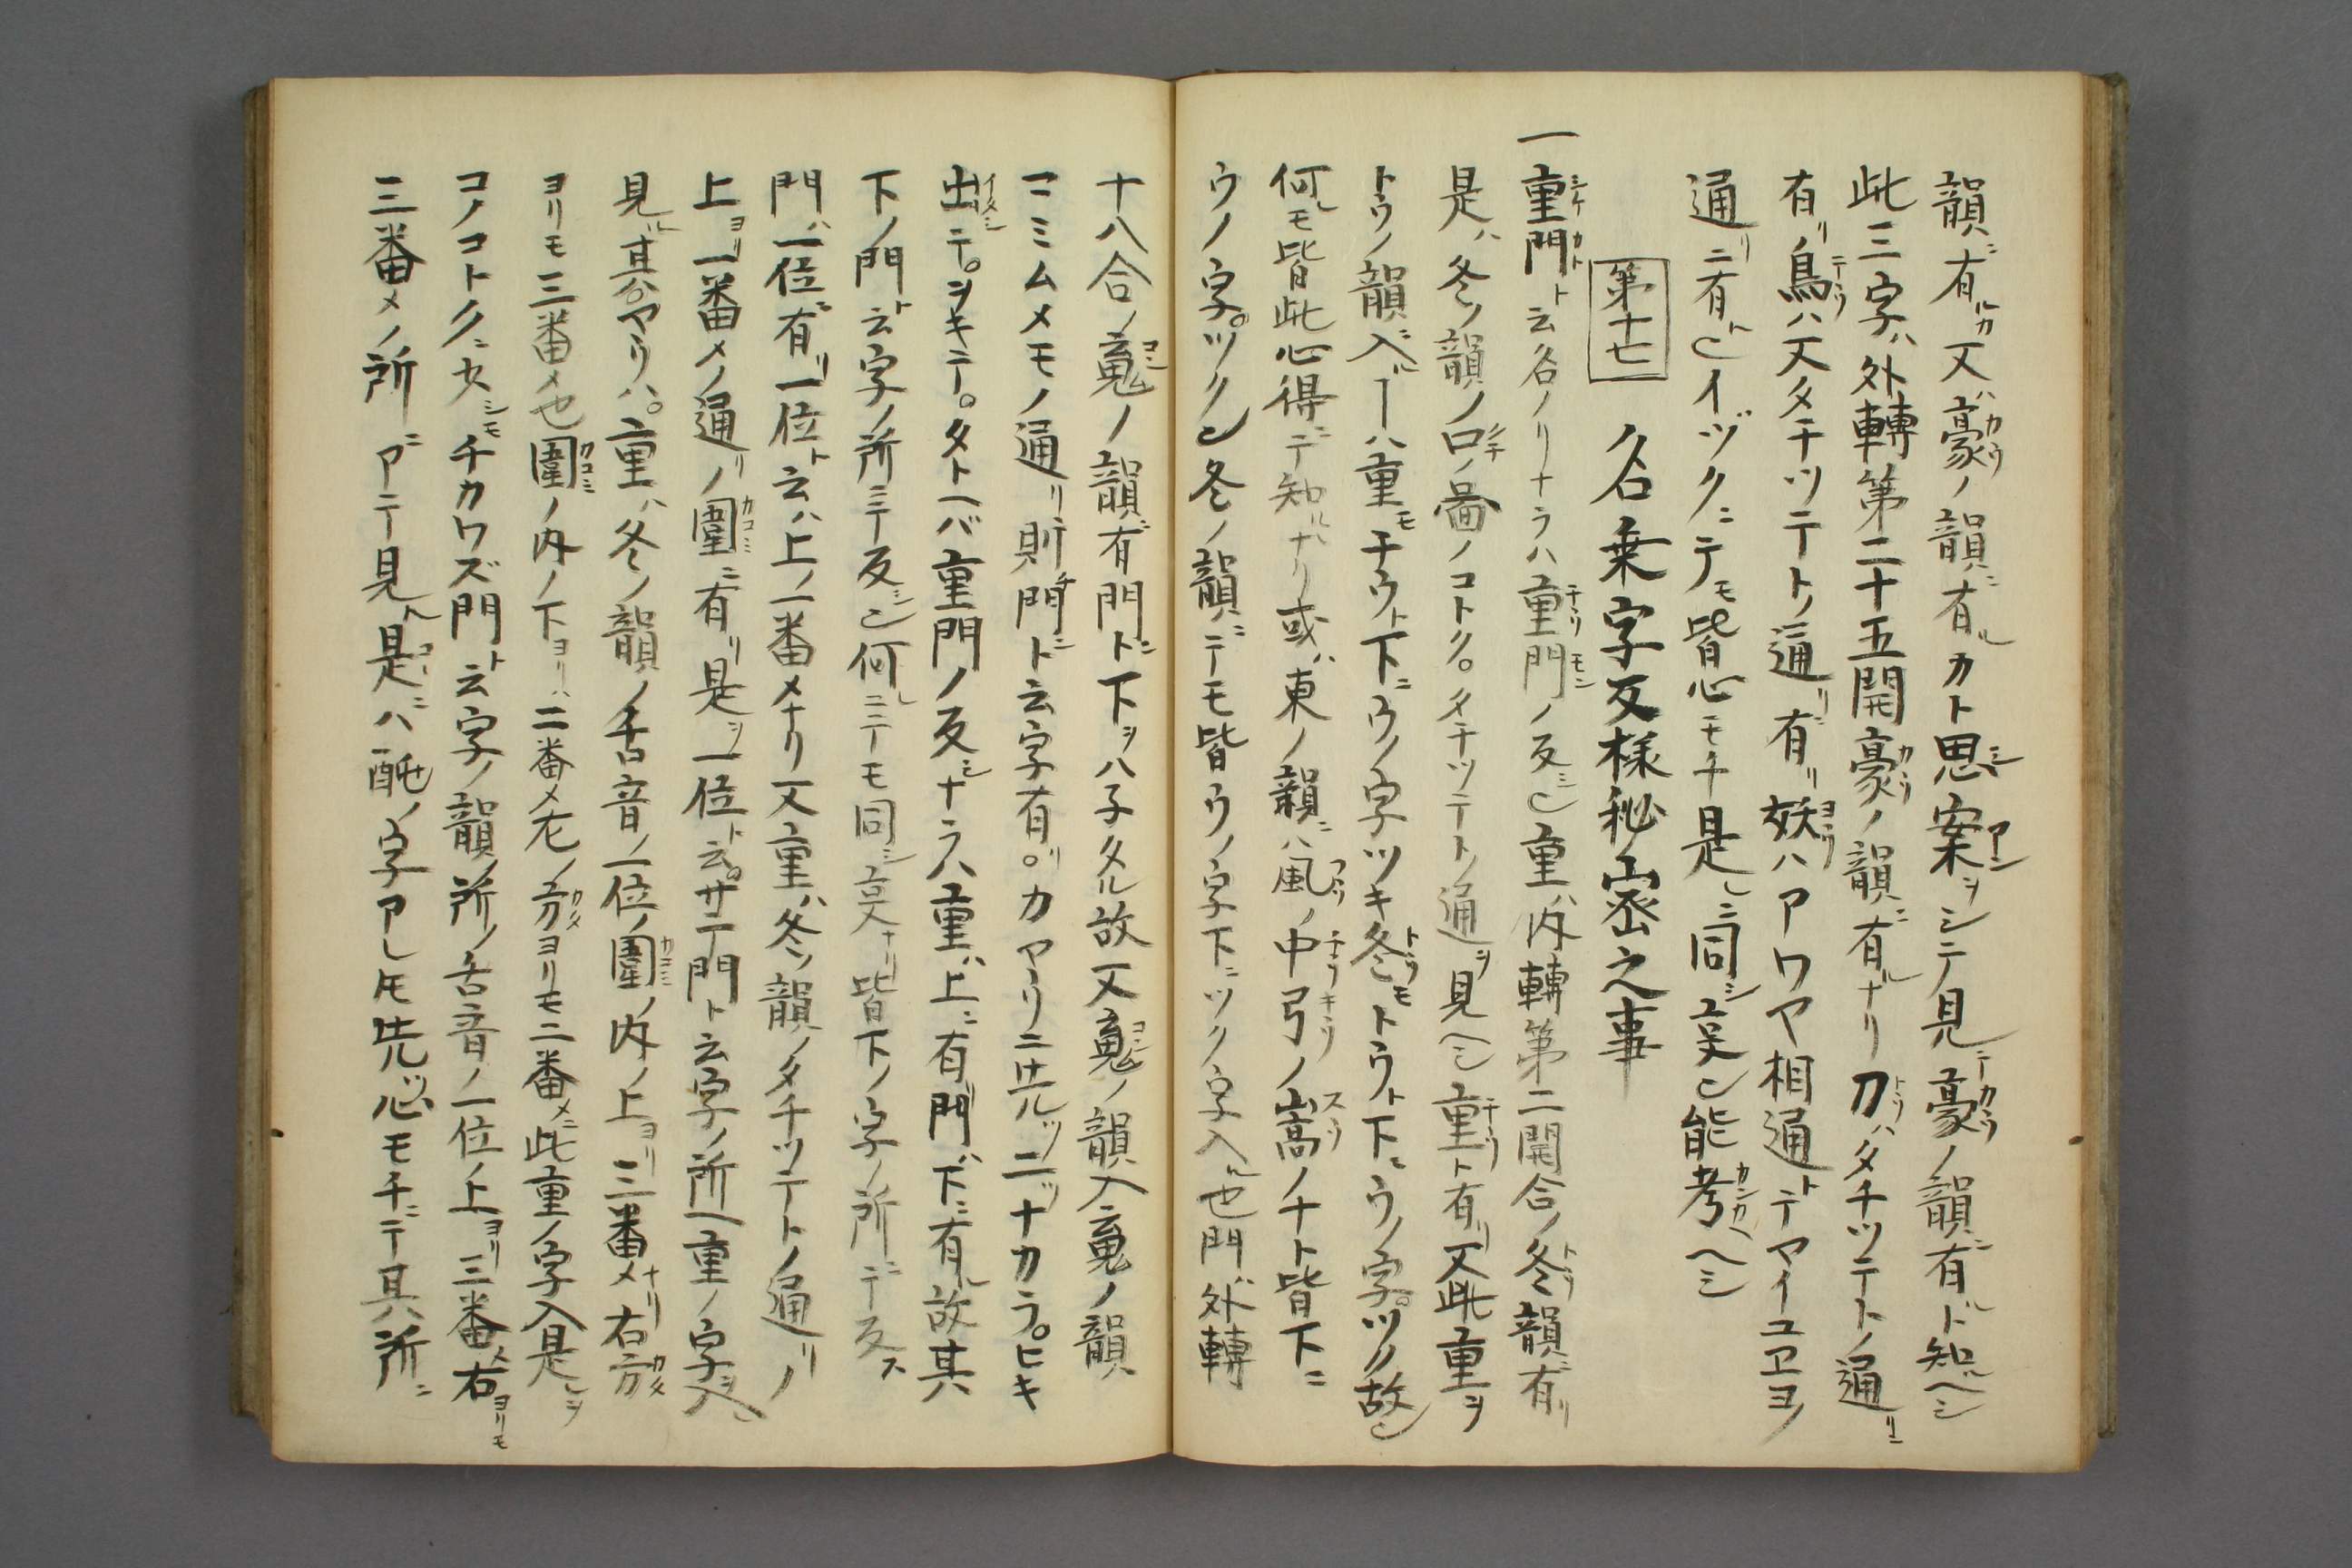 韻ニ有ルカ又ハ豪ノ韻ニ有ルカト思案ヲシテ見ニ豪ノ韻ニ有ルト知ヘシ
此三字ハ外轉第二十五開豪ノ韻ニ有ルナリ刀ハタチツテトノ通リニ
有リ鳥ハ又タチツテトノ通リニ有リ妖ハアワヤ相通トテヤイユヱヨノ
通リニ有ト也イヅクニテモ皆心モチ是レニ同シ㕝也能考ヘシ
第十七 名乗字反様秘密之事
一重門ト云名ノリナラハ重門ノ反シ也重ハ内轉第二開合ノ冬韻ニ有リ
是ハ冬ノ韻ノ口ノ啚ノコトク。タチツテトノ通ヲ見ヘシ重ト有リ又此重ヲ
トウノ韻ニ入ル丁ハ重モチウト下ニウノ字ツキ冬モトウト下ニウノ字。ツク故也
何レモ皆此心得ニテ知ルナリ或ハ東ノ韻ニハ風ノ中弓ノ嵩ノナト皆下ニ
ウノ字。ツク也冬ノ韻ニテモ皆ウノ字下ニツク字入ル也門ハ外轉
十八合ノ䰟ノ韻ニ有門ト下ヲハ子タル故又䰟ノ韻入䰟ノ韻ニ
マミムメモノ通リ則チ門ト云字有リ。カヤウニ先ツ二ツナカラ。ヒキ
出シテ。ヲキテ。タトヘバ重門ノ反シナラハ重ハ上ニ有門ハ下ニ有ル故其
下ノ門ト云字ノ所ニテ反シ也何レニテモ同シ㕝ナリ皆下ノ字ノ所ニテ反ス
門ハ一位ニ有リ一位ト云ハ上ノ一番メナリ又重ハ冬ノ韻ノタチツテトノ通リノ
上ヨリ一番メノ通リノ圍ニ有リ是ヲ一位ト云。サテ門ト云字ノ所ヘ重ノ字ヲ入レ
見ル其。ヤウハ。重ハ冬ノ韻ノ舌音ノ一位ノ圍ノ内ノ上ヨリ三番メナリ右ノ方
ヨリモ三番メ也圍ノ内ノ下ヨリハ二番メ左ノ方ヨリモ二番メニ此重ノ字入是レヲ
コノコトクニ少シモチカワズ門ト云字ノ韻ノ所ノ舌音ノ一位ノ上ヨリ三番メ右ヨリモ
三番メノ所ニアテ見ル是コニハ䣩ノ字アレ𪜈先ツ心モチニテ其所ニ